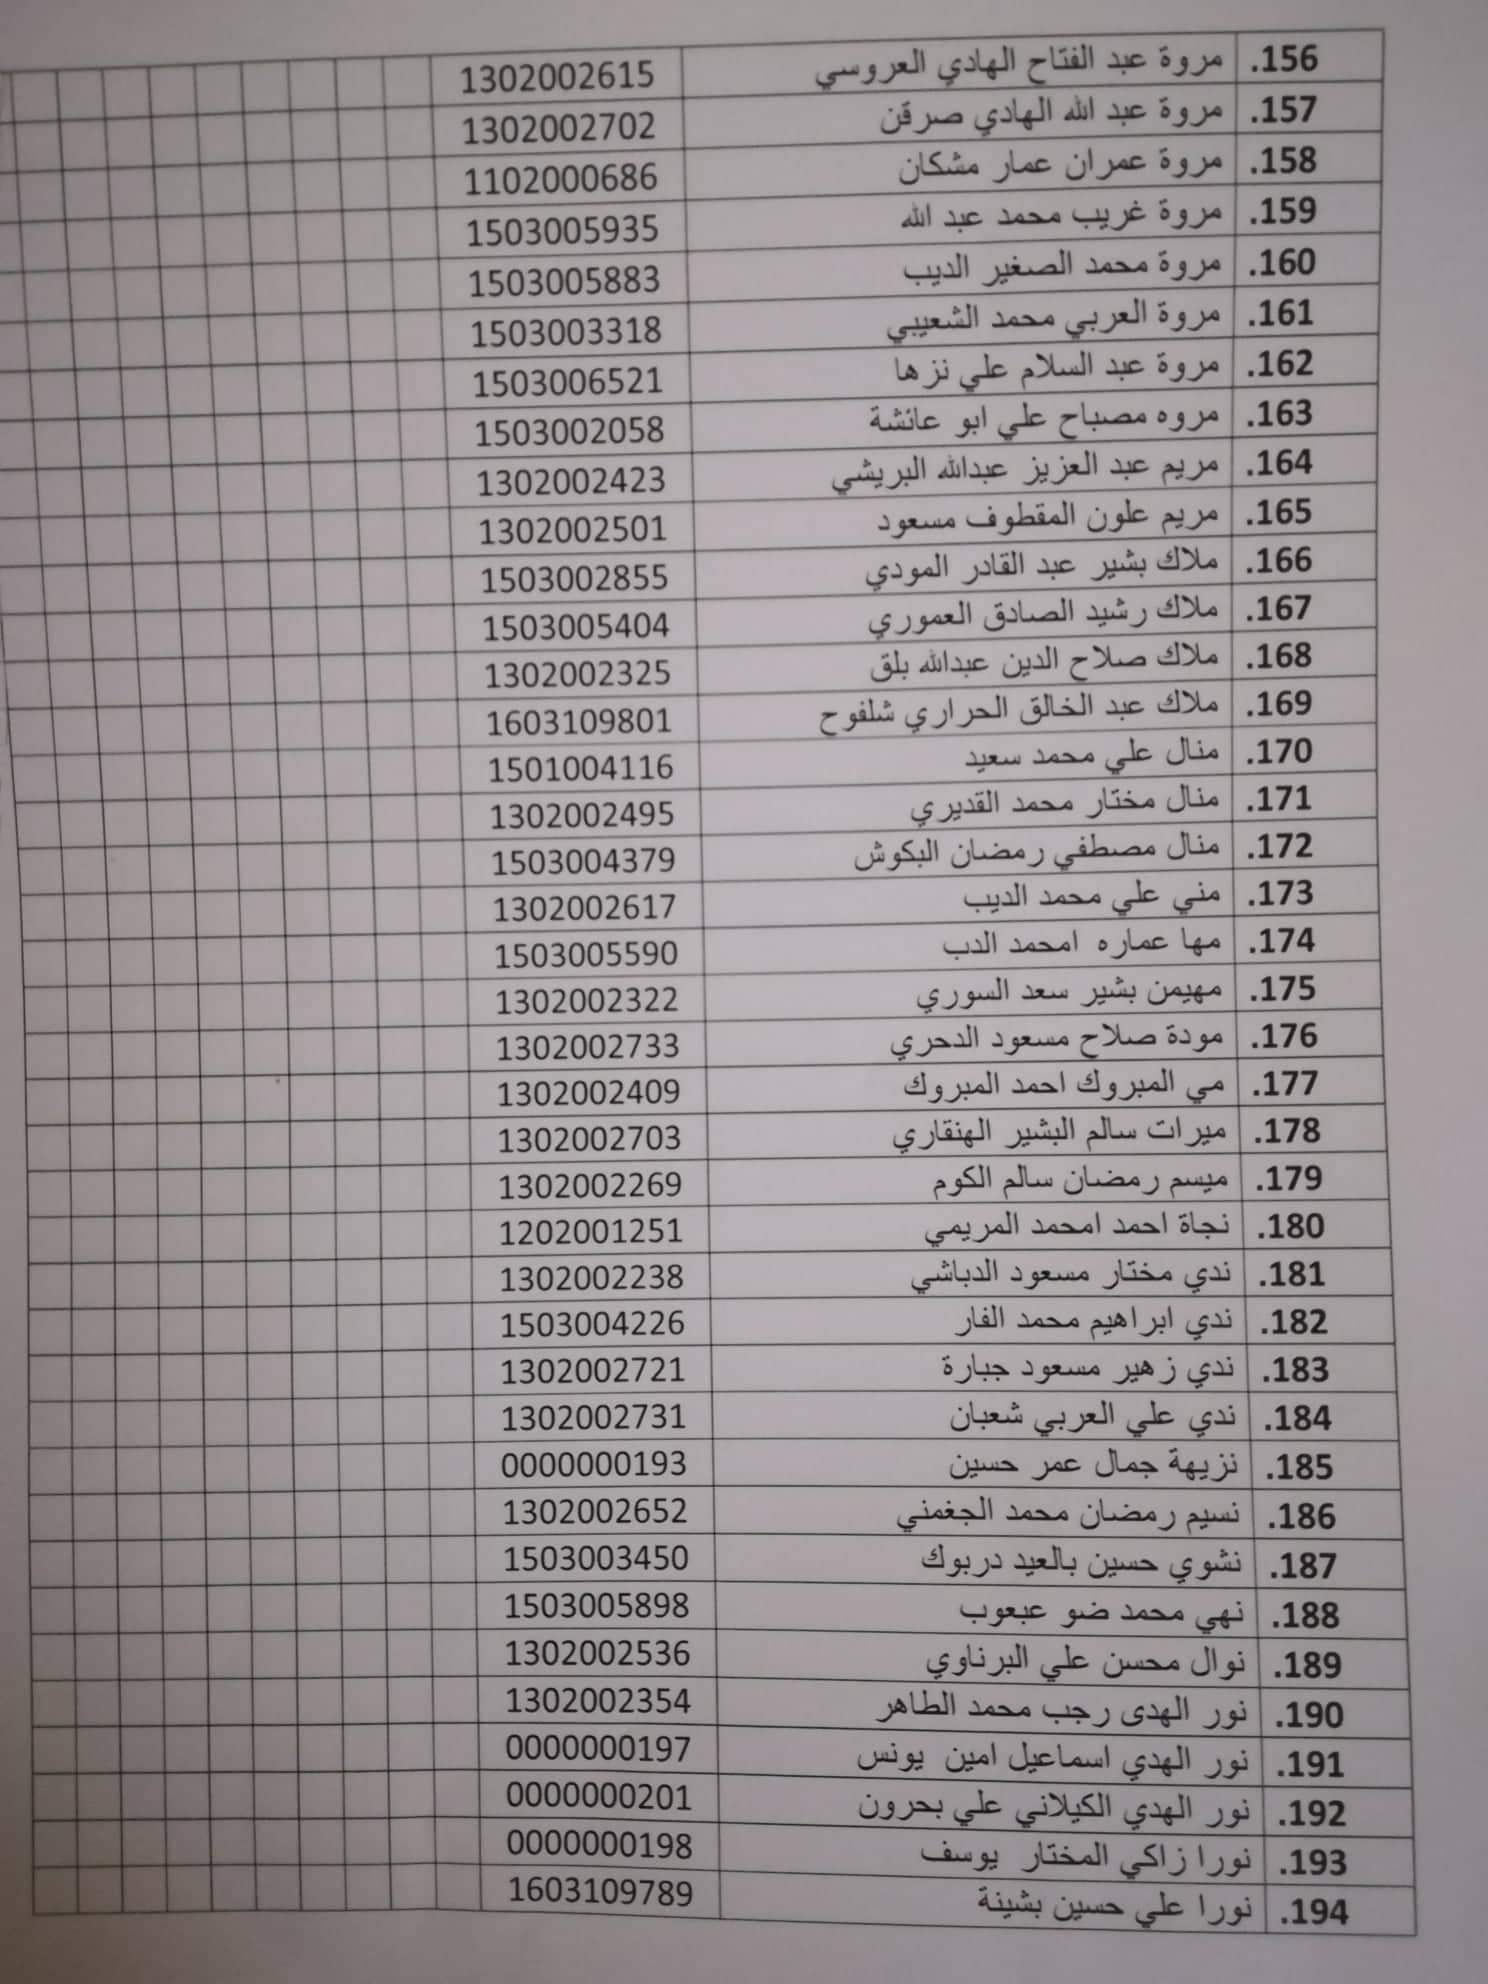 156. مروة عبد الفتاح الهادي العروسي 1302002615
157. مروة عبد الله الهادي صرقن 1302002702
158. مروة عمران عمار مشكان 1102000686
159. مروة غريب محمد عبد الله 1503005935
160. مروة محمد الصغير الديب 1503005883
161. مروة العربي محمد الشعيبي 1503003318
162. مروة عبد السلام علي نزها 1503006521
163. مروه مصباح علي ابو عائشة 1503002058
164. مريم عبد العزيز عبدالله البريشي 1302002423
165. مريم علون المقطوف مسعود 1302002501
166. ملاك بشير عبد القادر المودي 1503002855
167. ملاك رشيد الصادق العموري 1503005404
168. ملاك صلاح الدين عبدالله بلق 1302002325
169. ملاك عبد الخالق الحراري شلفوح 1603109801
170. منال علي محمد سعيد 1501004116
171. منال مختار محمد القديري 1302002495
172. منال مصطفي رمضان البكوش 1503004379
173. مني علي محمد الديب 1302002617
174. مها عماره امحمد الدب 1503005590
175. مهيمن بشير سعد السوري 1302002322
176. مودة صلاح مسعود الدحري 1302002733
177. مي المبروك احمد المبروك 1302002409
178. ميرات سالم البشير الهنقاري 1302002703
179. ميسم رمضان سالم الكوم 1302002269
180. نجاة احمد امحمد المريمي 1202001251
181. ندي مختار مسعود الدباشي 1302002238
182. ندي ابراهيم محمد الفار 1503004226
183. ندي زهير مسعود جبارة 1302002721
184. ندي علي العربي شعبان 1302002731
185. نزيهة جمال عمر حسين 0000000193
186. نسيم رمضان محمد الجغمني 1302002652
187. نشوي حسين بالعيد دربوك 1503003450
188. نهي محمد ضو عبعوب 1503005898
189. نوال محسن علي البرناوي 1302002536
190. نور الهدى رجب محمد الطاهر 1302002354
191. نور الهدي اسماعيل امين يونس 0000000197
192. نور الهدي الكيلاني علي بحرون 0000000201
193. نورا زاكي المختار يوسف 0000000198
194. نورا علي حسين بشينة 1603109789